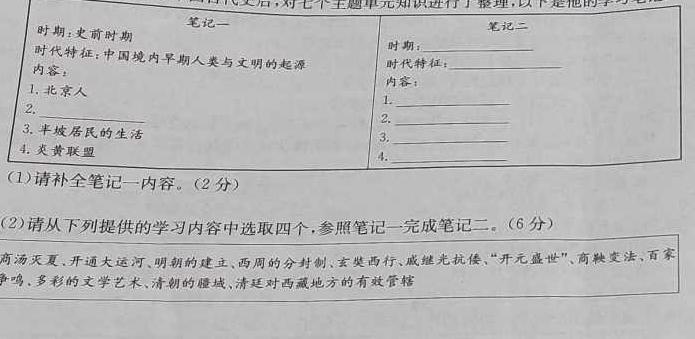 古代史后,对七个主题单元知识进行了整理,以下是他的学习笔记
笔记一
时期:史前时期
时代特征:中国境内早期人类与文明的起源
内容:
1. 北京人
2.
3. 半坡居民的生活
4. 炎黄联盟
笔记二
时期:
时代特征:
内容:
1.
2.
3.
4.
(1)请补全笔记一内容。(2分)
(2)请从下列提供的学习内容中选取四个,参照笔记一完成笔记二。(6分)
商汤灭夏、开通大运河、明朝的建立、西周的分封制、玄奘西行、戚继光抗倭、“开元盛世”、商鞅变法、百家
争鸣、多彩的文学艺术、清朝的疆域、清廷对西藏地方的有效管辖